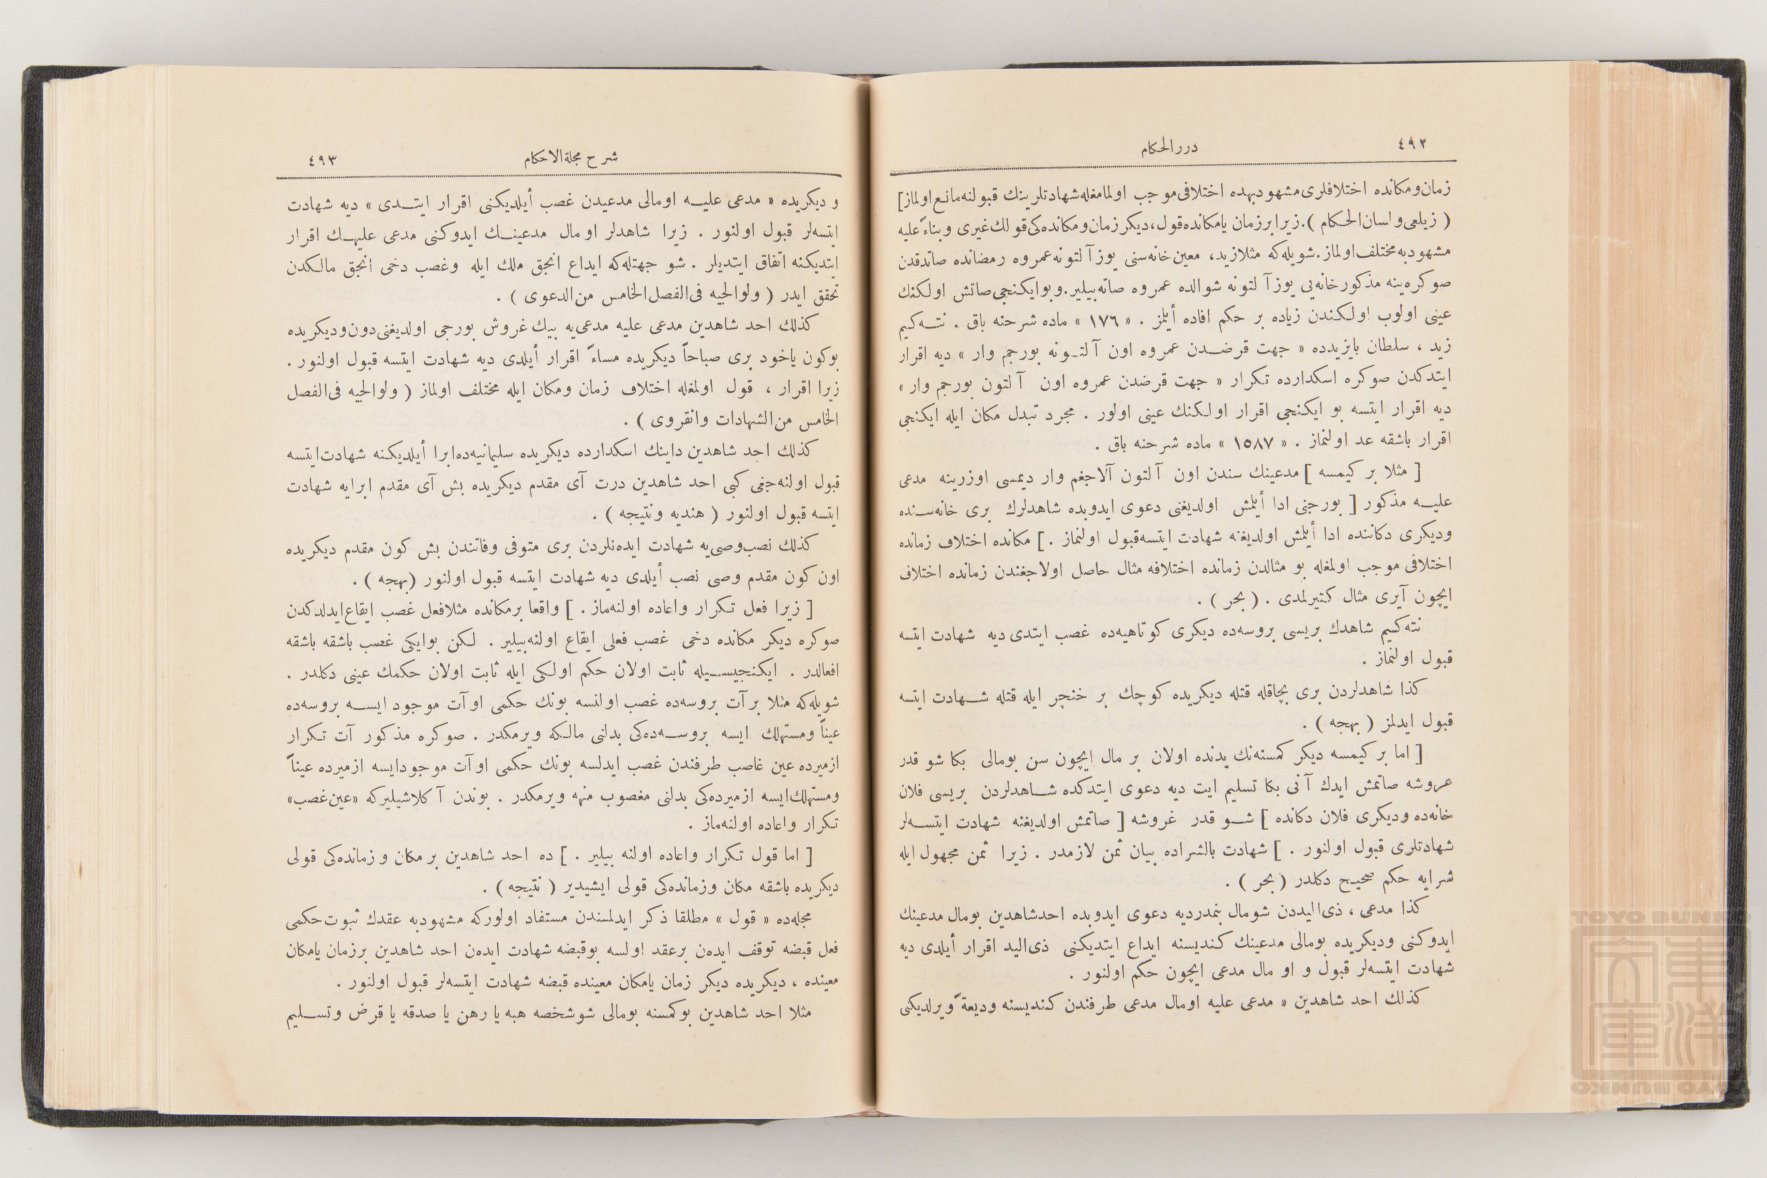 ٤٩٢
دررالحكام
زمان ومكانده اختلافلرى مشهودبهده اختلافى موجب اولمامغله شهادتلرينك قبولنه مانع اولماز]
( زيلعى ولسان الحكام ). زيرا برزمان يا مكانده قول، ديكر زمان ومكانده كى قولك غيرى وبناءً عليه
مشهودبه مختلف اولماز. شويله كه مثلا زيد، معين خانه سنى يوز آلتونه عمروه رمضانده صاتدقدن
صوكره ينه مذكور خانه يى يوز آلتونه شوالده عمروه صاته بيلير. و بو ايكنجى صاتش اولكنك
عينى اولوب اولكندن زياده بر حكم افاده أيلمز . « ١٧٦ » ماده شرحنه باق . نتــه كيم
زيد ، سلطان بايزيدده « جهت قرضــدن عمروه اون آلتــونه بورجم وار » ديه اقرار
ايتدكدن صوكره اسكدارده تكرار « جهت قرضدن عمروه اون آلتون بورجم وار »
ديه اقرار ايتسه بو ايكنجى اقرار اولكنك عينى اولور . مجرد تبدل مكان ايله ايكنجى
اقرار باشقه عد اولنماز . « ١٥٨٧ » ماده شرحنه باق .
[ مثلا بر كيمسه ] مدعينك سندن اون آلتون آلاجغم وار ديمسى اوزرينه مدعى
عليــه مذكور [ بورجنى ادا أيلمش اولديغنى دعوى ايدوبده شاهدلرك برى خانه سنده
وديكرى دكاننده ادا أيلمش اولديغنه شهادت ايتسه قبول اولنماز . ] مكانده اختلاف زمانده
اختلافى موجب اولمغله بو مثالدن زمانده اختلافه مثال حاصل اولاجغندن زمانده اختلاف
ايچون آيرى مثال كتيرلمدى . ( بحر ) .
نته كيم شاهدك بريسى بروسه ده ديكرى كوتاهيه ده غصب ايتدى ديه شهادت ايتسه
قبول اولنماز .
كذا شاهدلردن برى بچاقله قتله ديكريده كوچك بر خنچر ايله قتله شــهادت ايتسه
قبول ايدلمز ( بهجه ) .
[ اما بر كيمسه ديكر كمسنه نك يدنده اولان بر مال ايچون سن بومالى بكا شو قدر
غروشه صاتمش ايدك آنى بكا تسليم ايت ديه دعوى ايتدكده شــاهدلردن بريسى فلان
خانه ده وديكرى فلان دكانده ] شــو قدر غروشه [ صاتمش اولديغنه شهادت ايتســه لر
شهادتلرى قبول اولنور . ] شهادت بالشراده بيان ثمن لازمدر . زيرا ثمن مجهول ايله
شرايه حكم صحيح دكلدر ( بحر ) .
كذا مدعى ، ذى اليددن شومال بنمدرديه دعوى ايدوبده احد شاهدين بومال مدعينك
ايدوكنى وديكريده بومالى مدعينك كنديسنه ايداع ايتديكنى ذى اليد اقرار أيلدى ديه
شهادت ايتسه لر قبول و او مال مدعى ايچون حكم اولنور .
كذلك احد شاهدين « مدعى عليه اومال مدعى طرفندن كنديسنه وديعةً ويرلديكى
شرح مجلة الاحكام
٤٩٣
و ديكريده « مدعى عليــه اومالى مدعيدن غصب أيلديكنى اقرار ايتــدى » ديه شهادت
ايتسه لر قبول اولنور . زيرا شاهدلر اومال مدعينــك ايدوكنى مدعى عليهــك اقرار
ايتديكنه اتفاق ايتديلر . شو جهتله كه ايداع انجق ملك ايله وغصب دخى انجق مالكدن
تحقق ايدر ( ولوالجيه فى الفصل الخامس من الدعوى ) .
كذلك احد شاهدين مدعى عليه مدعى يه بيك غروش بورجى اولديغنى دون وديكريده
بوكون ياخود برى صباحاً ديكريده مساءً اقرار أيلدى ديه شهادت ايتسه قبول اولنور .
زيرا اقرار ، قول اولمغله اختلاف زمان ومكان ايله مختلف اولماز ( ولوالجيه فى الفصل
الخامس من الشهادات وانقروى ) .
كذلك احد شاهدين داينك اسكدارده ديكريده سليمانيه ده ابرا أيلديكنه شهادت ايتسه
قبول اولنه جغى كبى احد شاهدين درت آى مقدم ديكريده بش آى مقدم ابرايه شهادت
ايتسه قبول اولنور ( هنديه ونتيجه ) .
كذلك نصب وصى يه شهادت ايده نلردن برى متوفى وفاتندن بش كون مقدم ديكريده
اون كون مقدم وصى نصب أيلدى ديه شهادت ايتسه قبول اولنور (بهجه ) .
[ زيرا فعل تكرار واعاده اولنه ماز . ] واقعا برمكانده مثلا فعل غصب ايقاع ايدلدكدن
صوكره ديكر مكانده دخى غصب فعلى ايقاع اولنه بيلير . لكن بوايكى غصب باشقه باشقه
افعالدر . ايكنجيســيله ثابت اولان حكم اولكى ايله ثابت اولان حكمك عينى دكلدر .
شويله كه مثلا برآت بروسه ده غصب اولنسه بونك حكمى اوآت موجود ايســه بروسه ده
عيناً ومستهلك ايسه بروســه ده كى بدلنى مالكه ويرمكدر . صوكره مذكور آت تكرار
ازميرده عين غاصب طرفندن غصب ايدلسه بونك حكمى اوآت موجودايسه ازميرده عيناً
ومستهلك ايسه ازميرده كى بدلنى مغصوب منهه ويرمكدر . بوندن آكلاشيليركه «عين غصب»
تكرار واعاده اولنه ماز .
[ اما قول تكرار واعاده اولنه بيلير . ] ده احد شاهدين بر مكان و زمانده كى قولى
ديكريده باشقه مكان وزمانده كى قولى ايشيدير ( نتيجه ) .
مجله ده « قول » مطلقا ذكر ايدلمسندن مستفاد اولوركه مشهودبه عقدك ثبوت حكمى
فعل قبضه توقف ايده ن برعقد اولسه بوقبضه شهادت ايده ن احد شاهدين برزمان يامكان
معينده ، ديكريده ديكر زمان يامكان معينده قبضه شهادت ايتسه لر قبول اولنور .
مثلا احد شاهدين بوكمسنه بومالى شوشخصه هبه يا رهن يا صدقه يا قرض وتســليم
TOYO BUNKO
東洋文庫
TOYO BUNKO